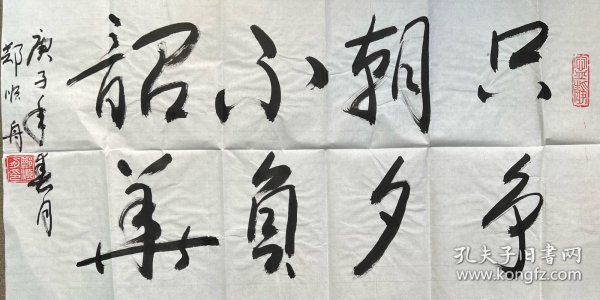 只争
朝夕
不负
韶华
庚子年春月
郑顺舟
孔夫子旧书网
www.kongfz.com